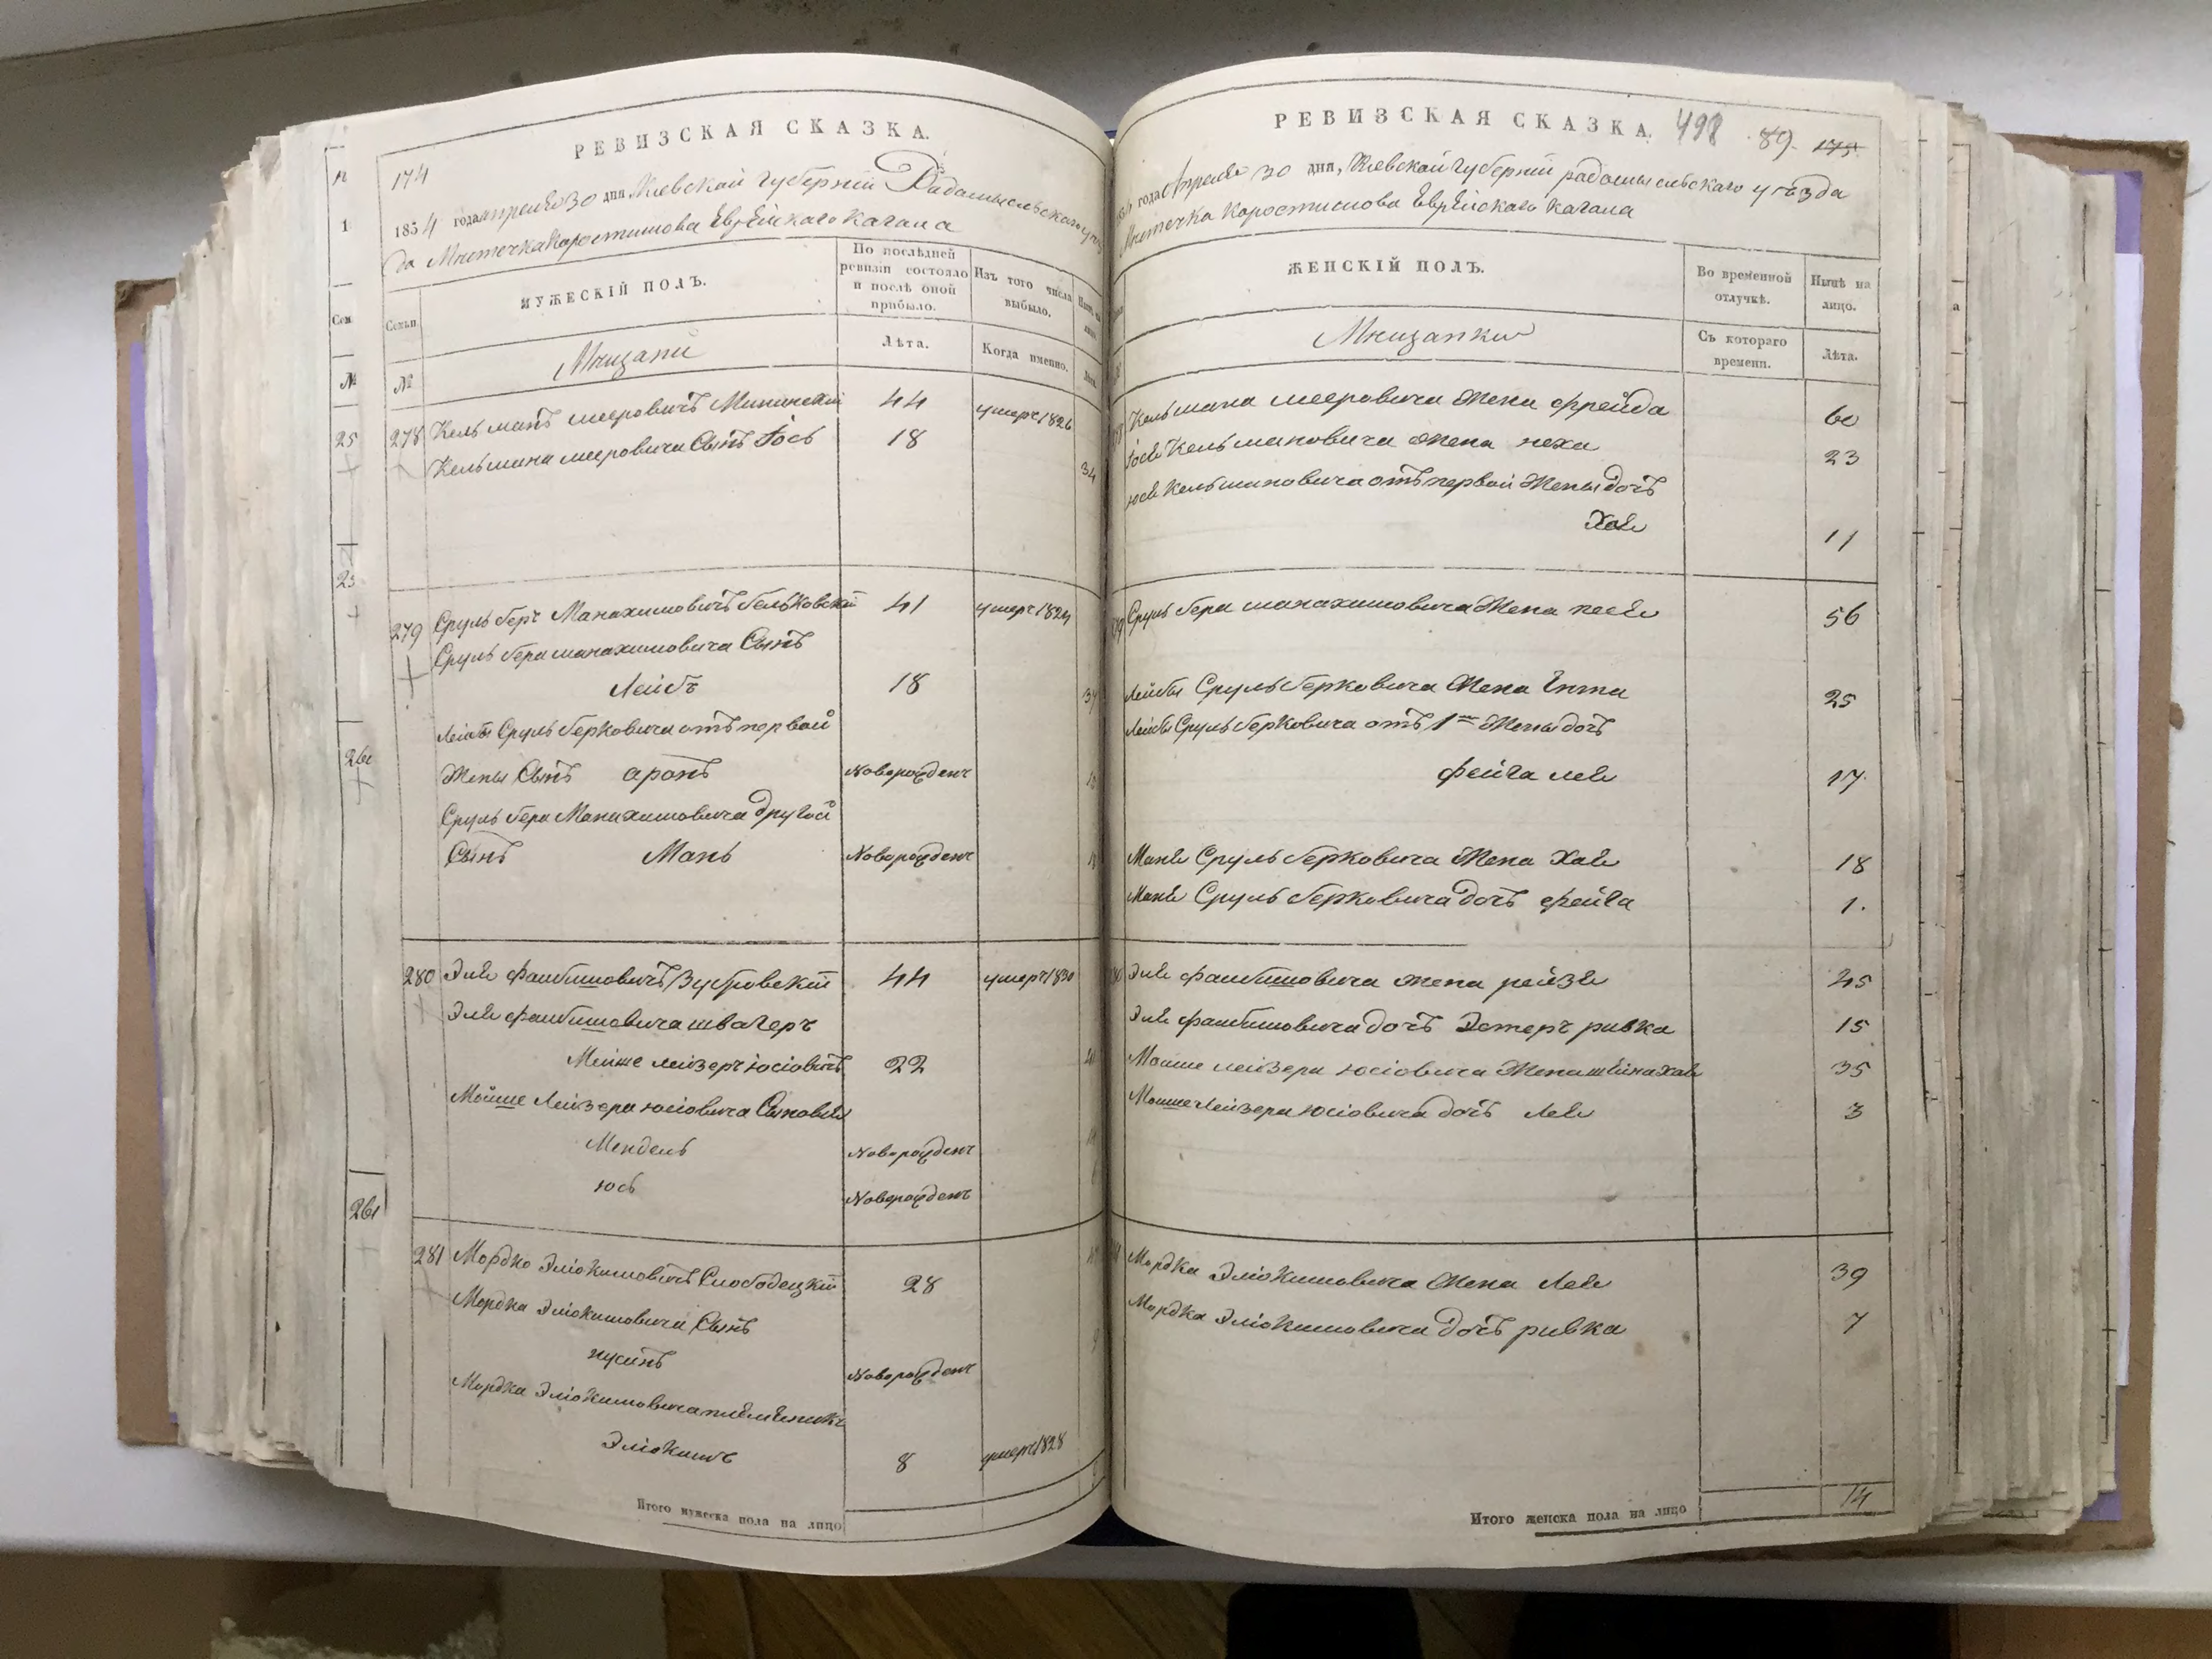 РЕВИЗСКАЯ СКАЗКА.
174
1834 года апреля 30 дня Киевской губерніи Радомысльского
да Мистечка Коростишова Еврейскаго Кагала
МУЖЕСКІЙ ПОЛЪ.
По послѣдней ревизіи состояло и послѣ оной прибыло.
Изъ того числа выбыло.
Семьи.
Мищани
Лѣта.
Когда именно.
№
278 Кельманъ мееровичъ 44 умеръ 1826
Кельмана мееровича Сынъ Іось 18 34
279 Сруль беръ Манахимовичъ Бельковскій 41 умеръ 1824
Сруль бера манахимовича Сынъ
Лейбъ 18
Лейбы Сруль берковича отъ первой
Жены Сынъ аронъ Новорожденъ
Сруль бера Манахимовича другой
Сынъ Мань Новорожденъ
280 Эле фаибишовичъ Зубровскій 44 умеръ 1830
Эле фаибишовича швагеръ
Мойше лейзеръ іосіовичъ 22
Мойше Лейзера юсіовича Сыновья
Мендель Новорожденъ
юсь Новорожденъ
281 Мордко Эліокимовичъ Слободецкій 28
Мордка Эліокимовича Сынъ
нусинъ Новорожденъ
Мордка Эліокимовича племеникъ
Эліокимъ 8 умеръ 1828
Итого мужеска пола на лицо
25
260
261
РЕВИЗСКАЯ СКАЗКА. 498 89. 175
года Апреля 30 дня, Киевской губерніи радомысльскаго уѣзда
Мистечка Коростишова Еврейскаго Кагала
ЖЕНСКІЙ ПОЛЪ.
Во временной отлучкѣ.
Нынѣ на лицо.
Мищанки
Съ котораго времени.
Лѣта.
Кельмана мееровича Жена фрейда 60
Іося Кельмановича Жена неха 23
юся Кельмановича отъ первой Жены дочь
Хая 11
Сруль бера манахимовича Жена песя 56
Лейбы Сруль берковича Жена Ента 25
Лейбы Сруль берковича отъ 1й Жены дочь
фейга лея 17.
Маня Сруль берковича Жена Хая 18
Маня Сруль берковича дочь фейга 1.
Эле фаибишовича жена рейзя 45
Эле фаибишовича дочь Эстеръ ривка 15
Мойше лейзера юсіовича Жена шейна хая 35
Мойше Лейзера юсіовича дочь Лея 3
Мордка Эліокимовича Жена Лея 39
Мордка Эліокимовича дочь ривка 7
Итого женска пола на лицо 14